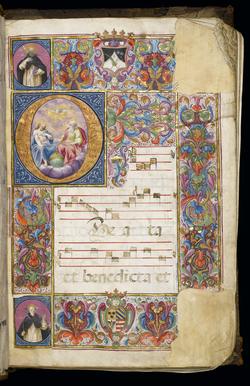 Beata
et benedicta et